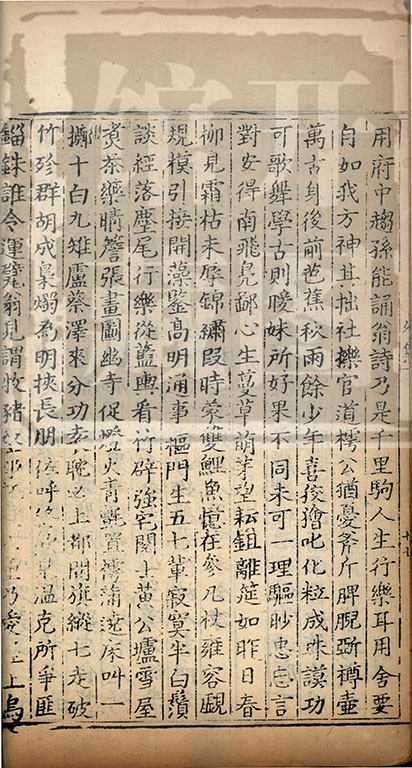 用府中趨孫能誦翁詩乃是千里駒人生行樂耳用舍要
自如我方神其拙社櫟官道樗公猶憂斧斤脾睨斲樽壺
萬古身後前芭蕉秋雨餘少年喜狡獪叱化粒成珠謨功
可歌舉學古則暖姝所好果不同未可一理驅眇忘言
對安得南飛鳧鄙心生蔓草萌芽望耘鉏離筵如昨日春
柳見霜枯未辱錦繡段時蒙雙鯉魚憶在參几杖雍容覷
規模引接開藻鑒高明涌事樞門生五七輩寂寞半白鬚
談經落麈尾行樂從籃輿看竹辟強宅閱士黃公壚雪屋
煮茶藥晴簷張畫圖幽寺促燈火青氈置樗蒲遶床叫一
擲十白九雉盧蔡澤來分功玄上都閱縱七走破
竹殄群胡成梟爝為明挾長朋呼溫克所爭匪
錙銖誰令運甓翁見謂牧豬乃愛上烏